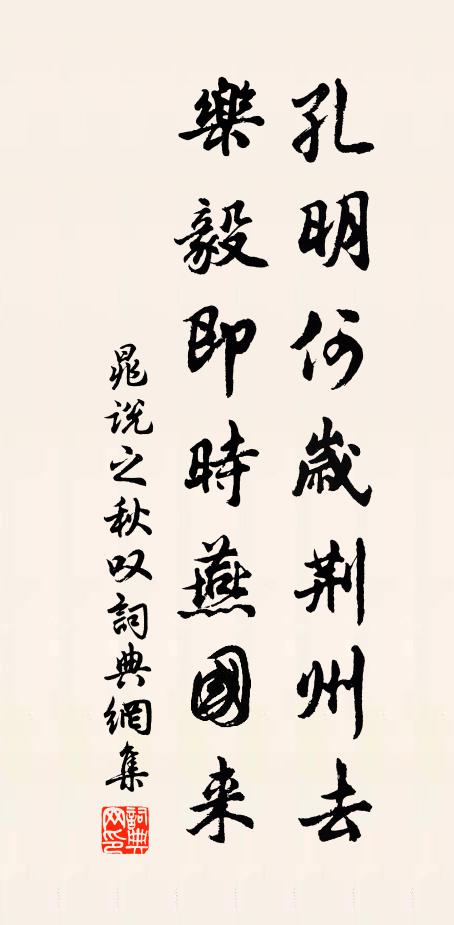 孔明何歲荆州去
樂毅即時燕國来
晁說之秋叹詞典網集
詞典网印